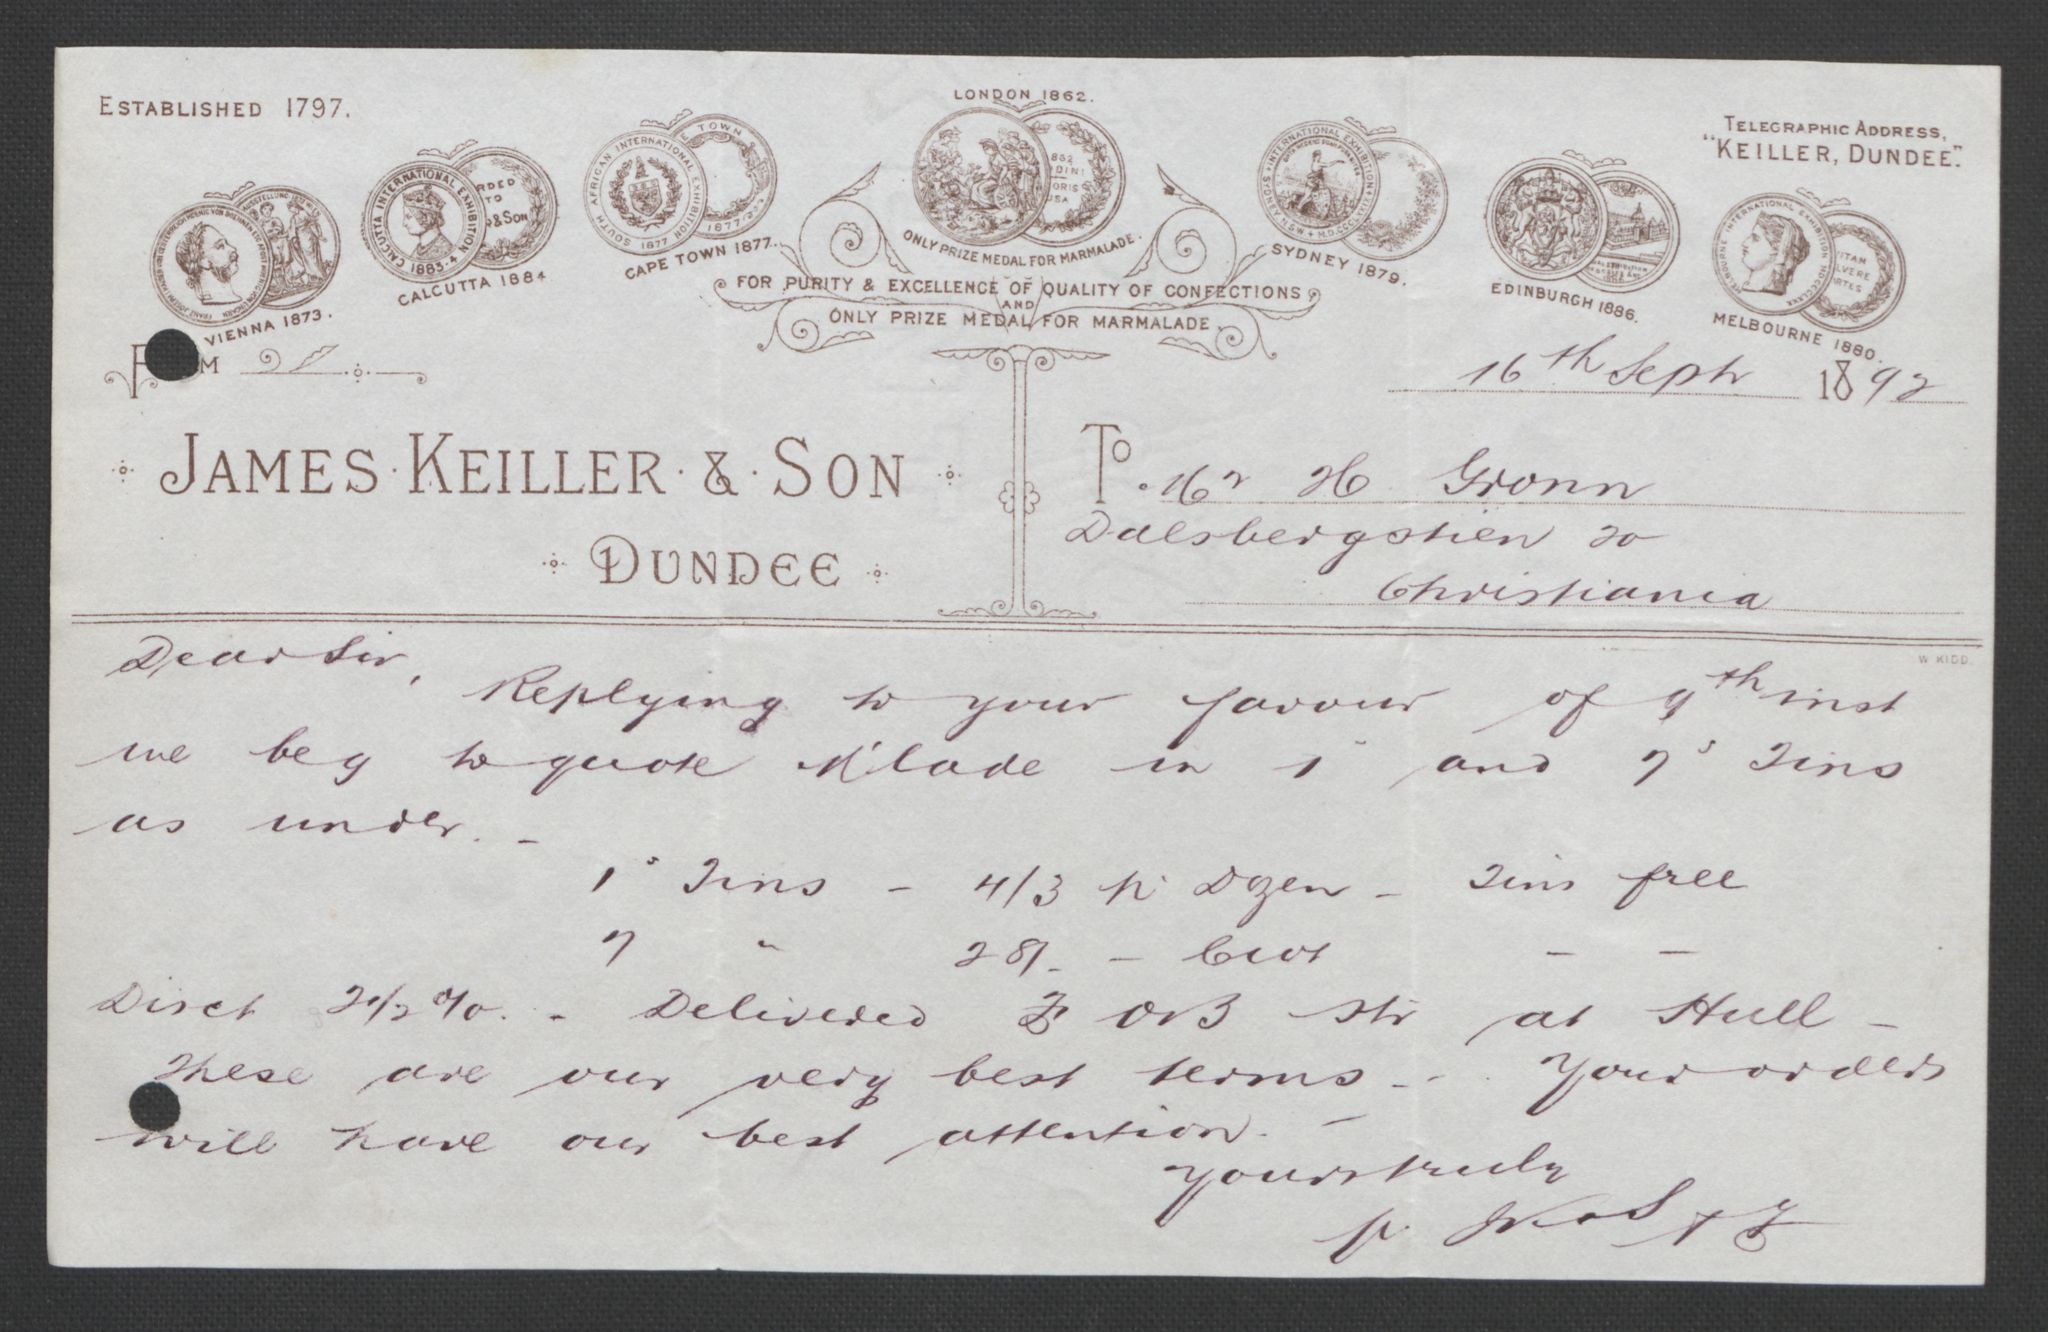 ESTABLISHED 1797.
LONDON 1862.
TELEGRAPHIC ADDRESS,
"KEILLER, DUNDEE".
VIENNA 1873.
CALCUTTA INTERNATIONAL EXHIBITION
1883-4
CALCUTTA 1884
SOUTH AFRICAN INTERNATIONAL EXHIBITION
1877
CAPE TOWN 1877.
ONLY PRIZE MEDAL FOR MARMALADE.
SYDNEY 1879.
EDINBURGH 1886.
MELBOURNE INTERNATIONAL EXHIBITION MDCCCLXXX
MELBOURNE 1880.
FOR PURITY & EXCELLENCE OF QUALITY OF CONFECTIONS
AND
ONLY PRIZE MEDAL FOR MARMALADE.
16th Septr 1892
JAMES KEILLER & SON
DUNDEE
To Mr H Gronn
Dalsbergstien 20
Christiania
W KIDD.
Dear Sir,
Replying to your favour of 9th inst
we beg to quote M'lade in 1s and 7s Tins
as under. -
1s Tins - 4/3 pr Dzen - Tins free
7 " 28/- - Cwt - -
Disct 2 1/2 %. - Delivered F O B Str at Hull -
These are our very best terms - . Your orders
will have our best attention. -
Yours truly
p. JK & S